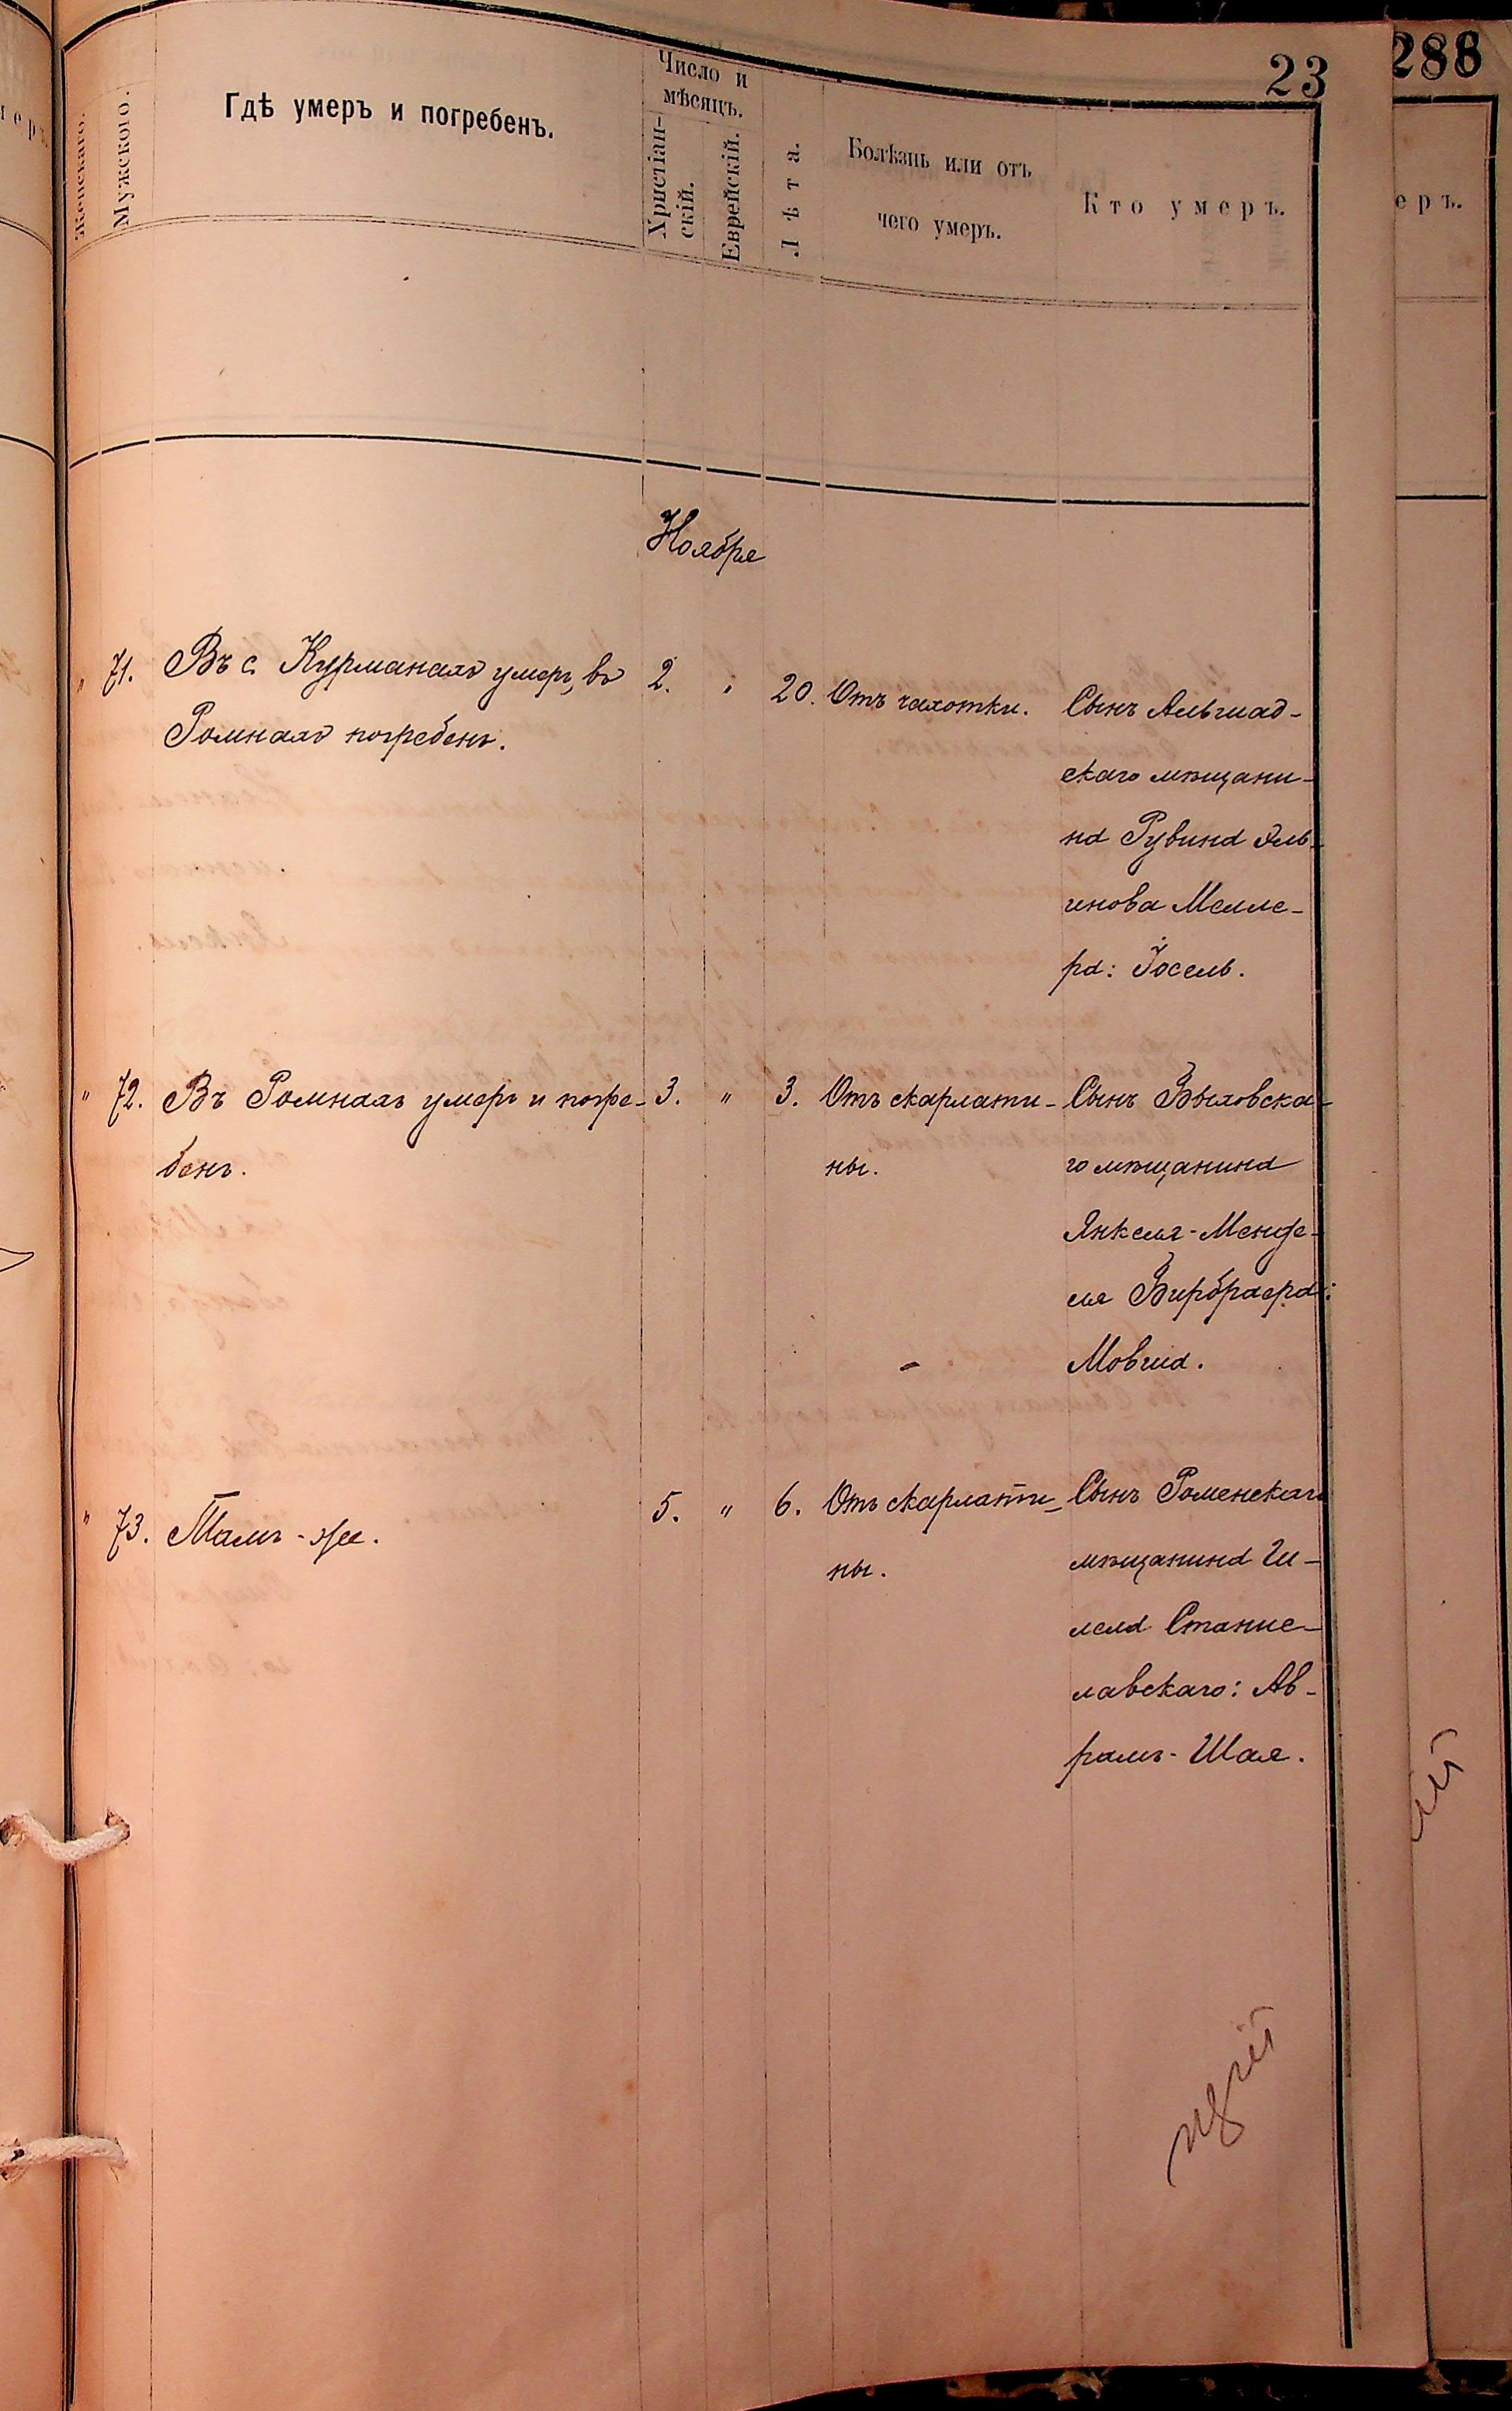 23
288
Женскаго.
Мужскаго.
Гдѣ умеръ и погребенъ.
Число и мѣсяцъ.
Христіан-
скій.
Еврейскій.
Лѣта.
Болѣзнь или отъ
чего умеръ.
Кто умеръ.
еръ.
Ноября
" 71. Въ с. Курманахъ умеръ, въ 2. " 20. Отъ чахотки. Сынъ Альшад-
Ромнахъ погребенъ.
скаго мѣщани-
на Рувина Эль-
чинова Мелле-
ра: Іосель.
" 72. Въ Ромнахъ умеръ и погре- 3. " 3. Отъ скарлати- Сынъ Быховска-
бенъ. ны. го мѣщанина
Янкеля-Менде-
ля Бирбраера:
Мовша.
" 73. Тамъ-же. 5. " 6. Отъ скарлати- Сынъ Роменскаго
ны. мѣщанина Ши-
лема Станис-
лавскаго: Аб-
рамъ-Шая.